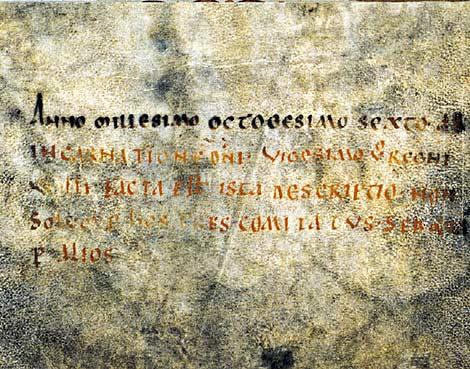 ANNO MILLESIMO OCTOGESIMO SEXTO AB
INCARNATIONE DNI VIGESIMO V REGNI
WILLI FACTA EST ISTA DESCRIPTIO NON
SOLUM P HOS TRES COMITATUS SED
P ALIOS